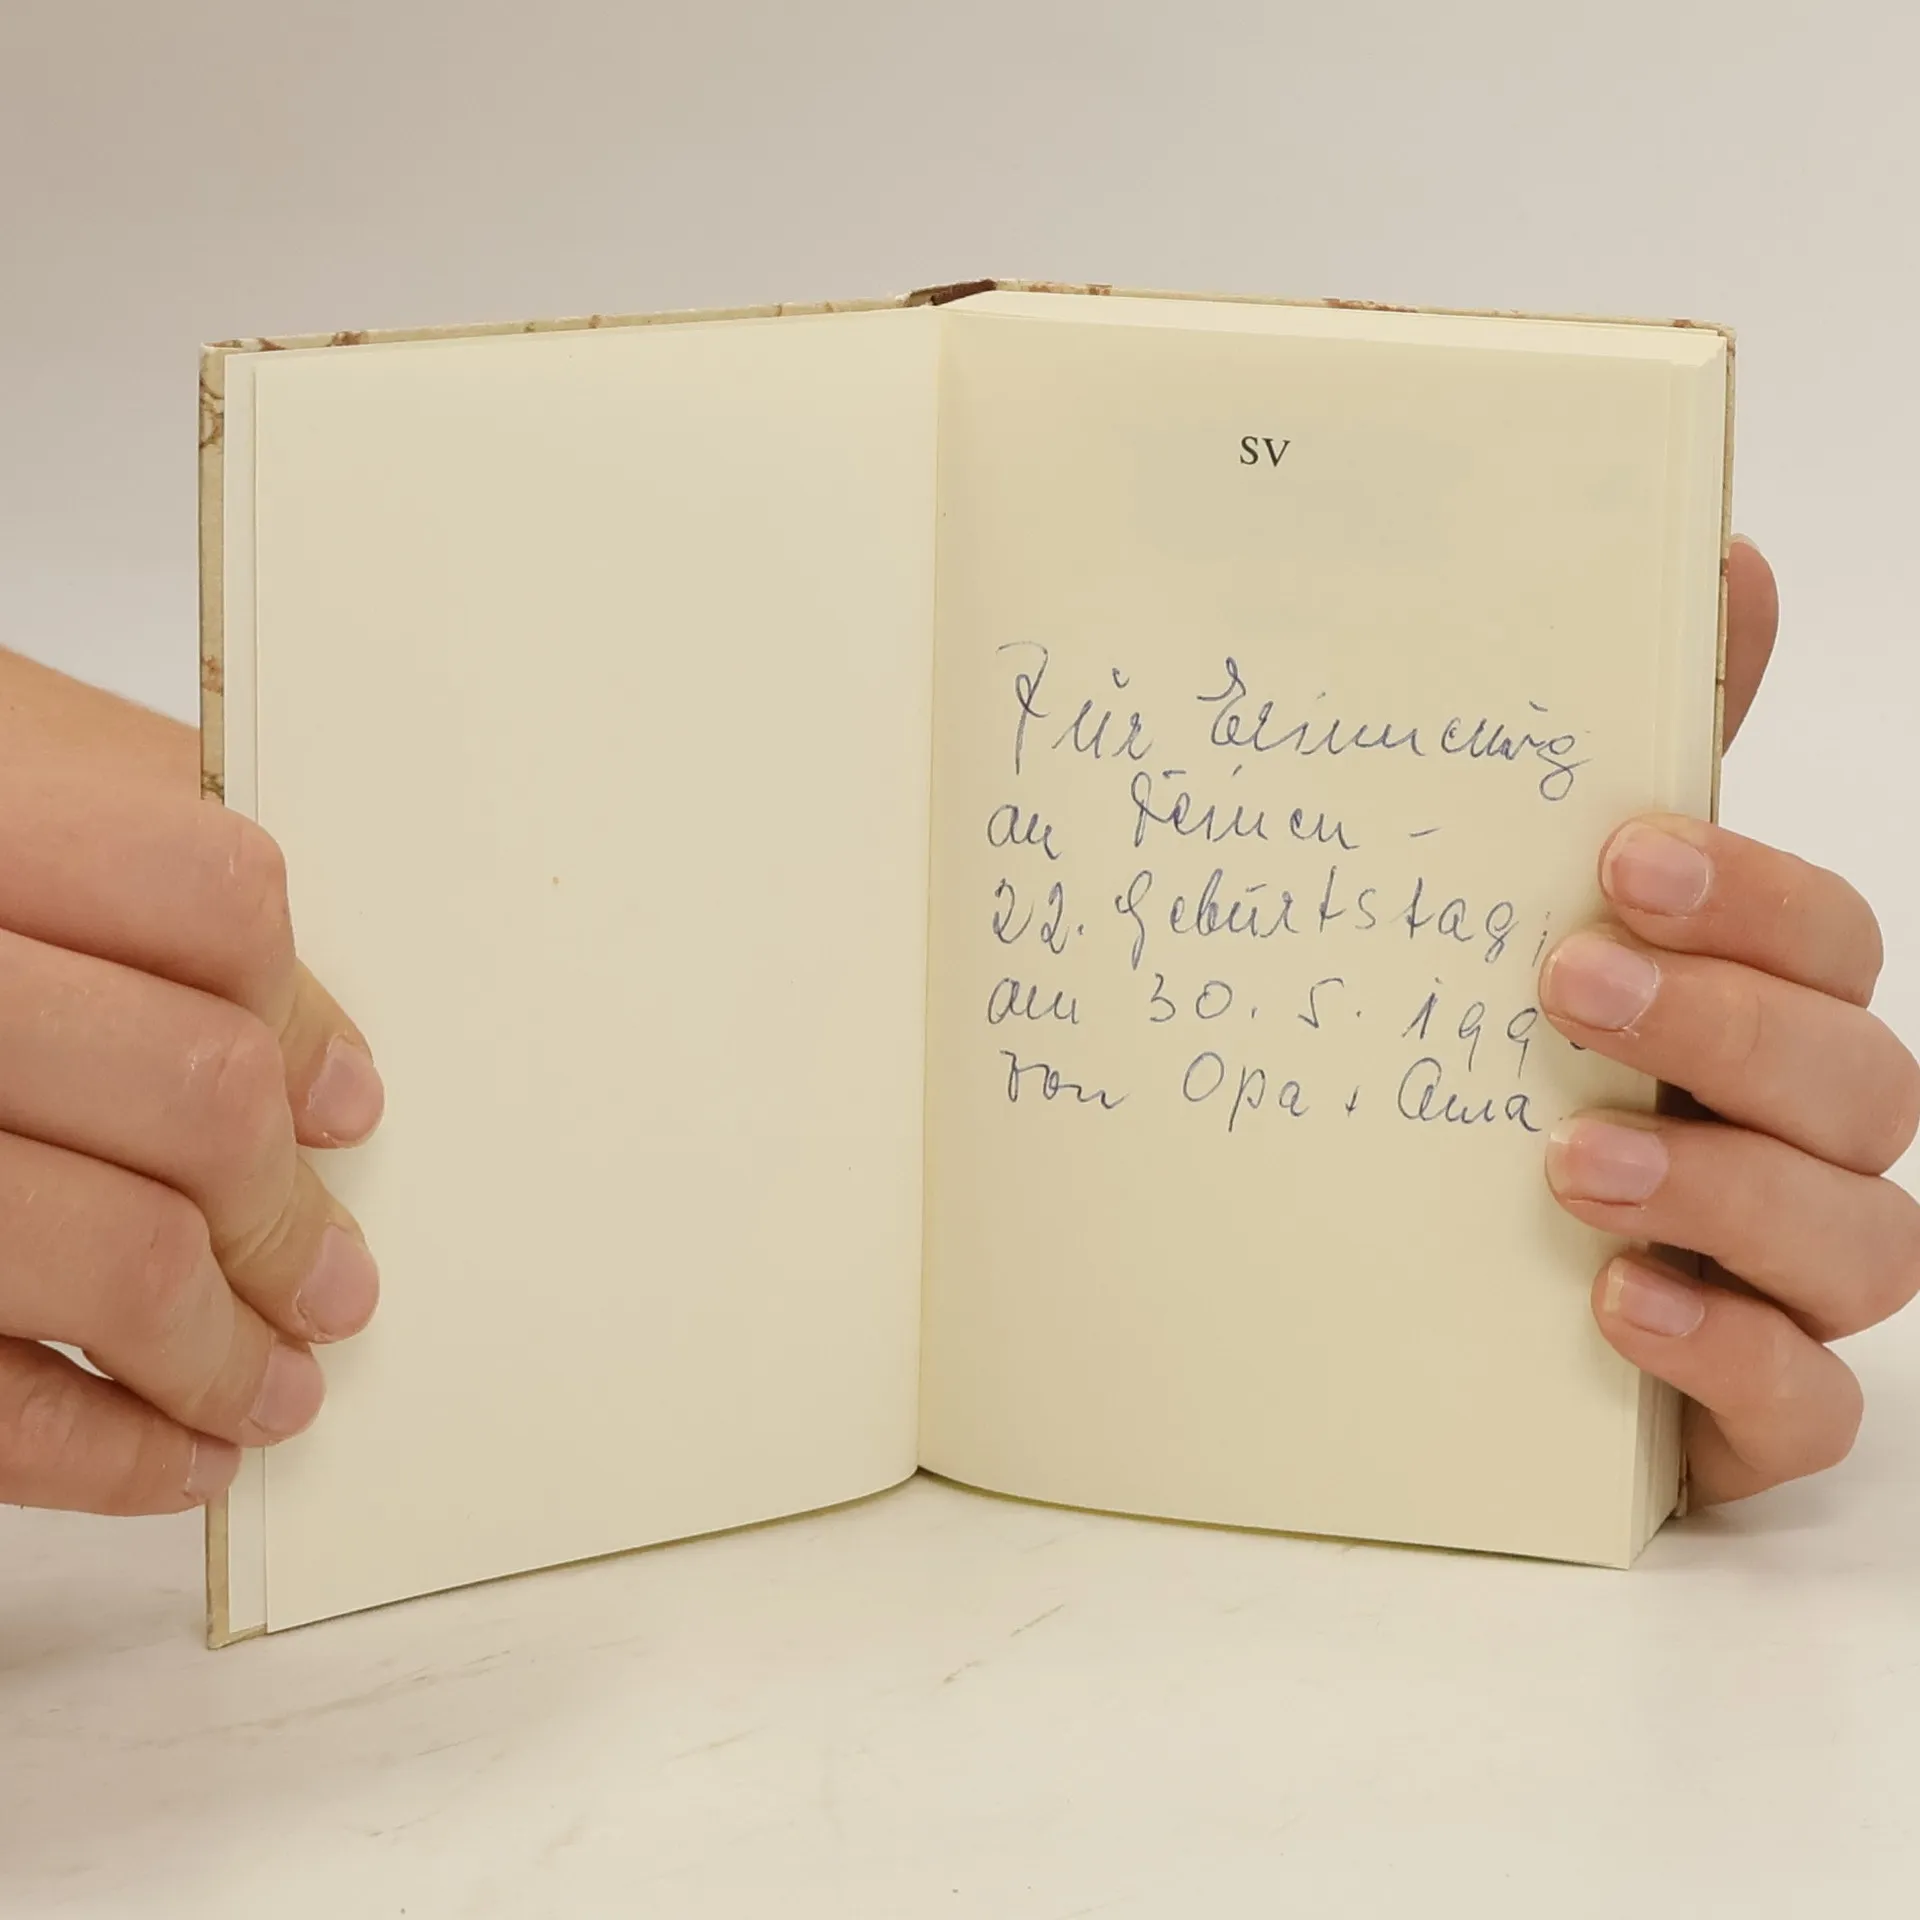 SV
Für Erinnerung
an Deinen -
22. Geburtstag,
am 30. 5. 199
von Opa + Oma.